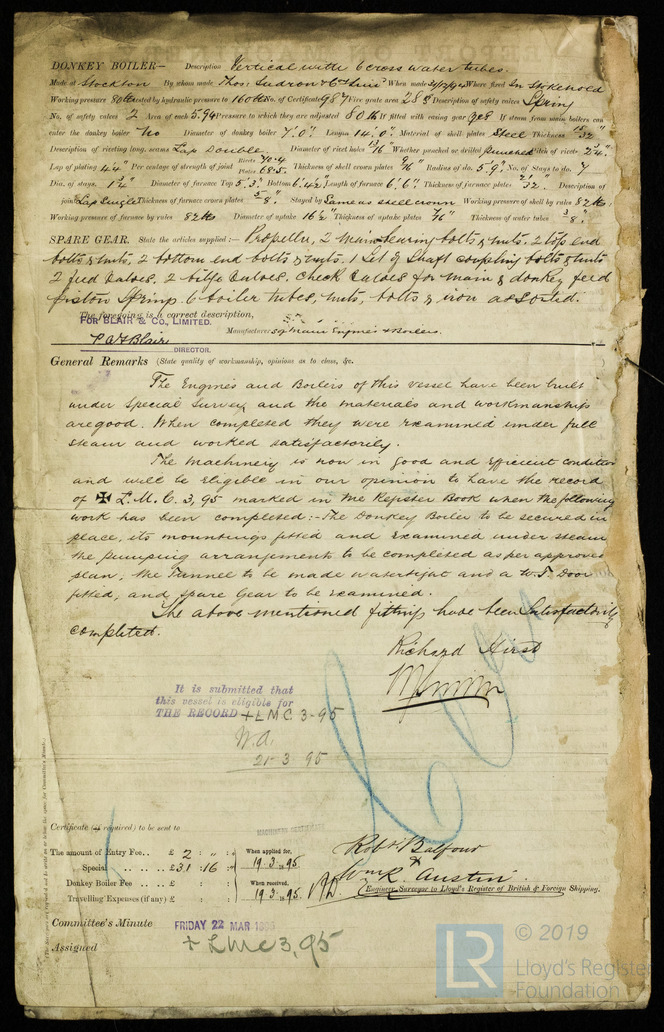 DONKEY BOILER— Description Vertical with 6 cross water tubes.
Made at Stockton By whom made When made Where fixed In Stokehold
Working pressure 80 lbs tested by hydraulic pressure to 160 lbs No. of Certificate 987 Fire grate area 28 Description of safety valves Spring
No. of safety valves 2 Area of each 5.94 Pressure to which they are adjusted 80 lb If fitted with easing gear yes If steam from main boilers can
enter the donkey boiler No Diameter of donkey boiler 7'.0" Length 14'.0" Material of shell plates Steel Thickness 15/32"
Description of riveting long. seams Lap Double. Diameter of rivet holes 13/16" Whether punched or drilled punched Pitch of rivets 2 3/4"
Lap of plating 4 1/4" Per centage of strength of joint Rivets 70.4 Plates 68.5 Thickness of shell crown plates 9/16" Radius of do. 5'.9" No. of Stays to do. 7
Dia. of stays. 1 3/4" Diameter of furnace Top 5'.3" Bottom 6'.4 1/2" Length of furnace 6'.6" Thickness of furnace plates Description of
joint Lap Single Thickness of furnace crown plates 5/8". Stayed by Same as shell crown Working pressure of shell by rules 82 lbs
Working pressure of furnace by rules 82 lbs Diameter of uptake 16 1/2" Thickness of uptake plates Thickness of water tubes 3/8".
SPARE GEAR. State the articles supplied:— Propeller, 2 main bearing bolts & nuts. 2 top end
bolts & nuts, 2 bottom end bolts & nuts. 1 Set of Shaft coupling bolts & nuts
2 feed valves, 2 bilge valves, check valves for main & donkey feed
piston Springs 6 boiler tubes, nuts, bolts & iron assorted.
The foregoing is a correct description,
FOR BLAIR & CO., LIMITED.
Blair Manufacturer of Main Engines & Boilers.
DIRECTOR.
General Remarks (State quality of workmanship, opinions as to class, &c.
The Engines and Boilers of this vessel have been built
under Special Survey and the materials and workmanship
are good. When completed they were examined under full
steam and worked satisfactorily.
The machinery is now in good and efficient condition
and will be eligible in our opinion to have the record
of ✠ L.M.C. 3,95 marked in the Register Book when the following
work has been completed:- The Donkey Boiler to be secured in
place, its mountings fitted and examined under steam
the pumping arrangements to be completed as per approved
plan, the Tunnel to be made watertight and a W.T. Door
fitted, and spare Gear to be examined.
The above mentioned fittings have been Satisfactorily
completed.
Richard Hirst
It is submitted that
this vessel is eligible for
THE RECORD + LMC 3-95
W.A.
21-3-95
Certificate (if required) to be sent to
The amount of Entry Fee.. £ 2 : " :
Special £ 31 : 16 :
Donkey Boiler Fee £ : :
Travelling Expenses (if any) £ : :
When applied for,
19.3.1895
When received,
19.3.1895
Robt Balfour
Wm R. Austin
Engineer Surveyor to Lloyd's Register of British & Foreign Shipping.
Committee's Minute FRIDAY 22 MAR 1895
Assigned + LMC 3,95
LR © 2019
Lloyd's Register
Foundation